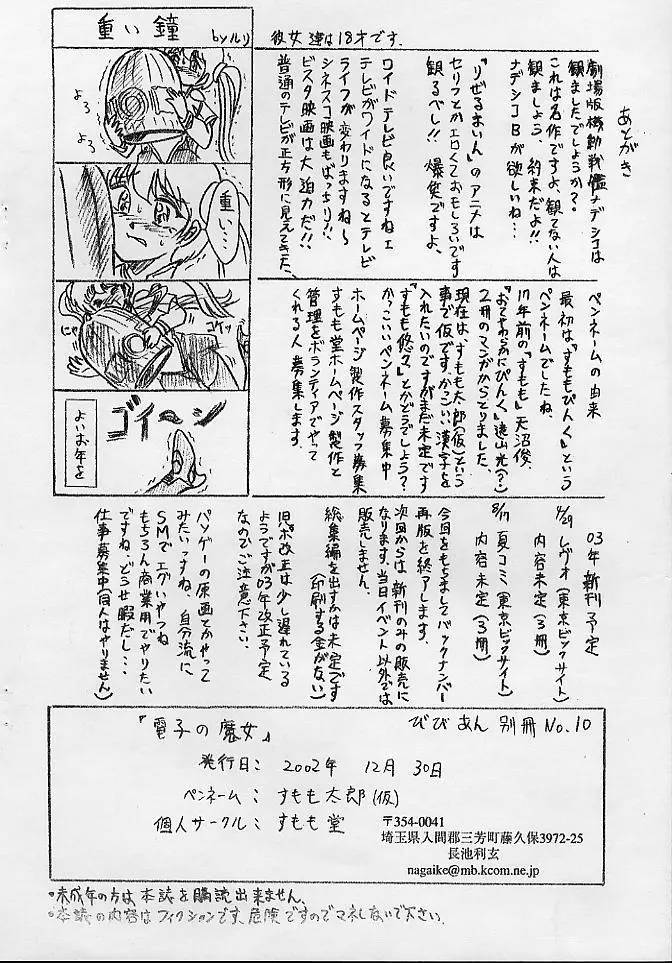 重い鐘
byルリ
よろ
よろ
重い…
にゃ
コケッ
ゴイ〜ン
よいお年を
彼女達は18才です.
あとがき
劇場版機動戦艦ナデシコは
観ましたでしょうか?
これは名作ですよ、観てない人は
観ましょう、約束だよ!!
ナデシコBが欲しいね…
『りぜるまいん』のアニメは
セリフとかエロくておもしろいです
観るべし!! 爆笑ですよ、
ワイドテレビ良いですねェ
テレビがワイドになるとテレビ
ライフが変わりますね〜
シネスコ映画もばっちり!!
ビスタ映画は大迫力だ!!
普通のテレビが正方形に見えてきた、
ペンネームの由来
最初は『すももぴんく』という
ペンネームでしたね、
17年前の『すもも』天沼俊、
『おてやわらかにぴんく』遠山光(?)
2冊のマンガからとりました、
現在は、すもも太郎(仮)という
事で仮です、かっこいい漢字を
入れたいのですがまだ未定です
『すもも悠々』とかどうでしょう?
かっこいいペンネーム募集中
ホームページ製作スタッフ募集
すもも堂ホームページ製作と
管理をボランティアでやって
くれる人募集します。
03年新刊予定
4/29 レヴォ(東京ビックサイト)
内容未定(3冊)
8/17 夏コミ(東京ビックサイト)
内容未定(3冊)
今回をもちましてバックナンバー
再版を終了します.
次回からは、新刊のみの販売に
なります、当日イベント以外では
販売しません、
総集編を出すかは未定です
(印刷する金がない)
旧ポ改正は少し遅れている
ようですが03年改正予定
なのでご注意下さい、
パソゲーの原画とかやって
みたいっすね、自分流に
SMでエグいやつね
もちろん商業用でやりたい
ですね、どうせ暇だし…
仕事募集中(同人はやりません)
『電子の魔女』
びびあん 別冊 No.10
発行日: 2002年 12月 30日
ペンネーム: すもも太郎(仮)
個人サークル: すもも堂
〒354-0041
埼玉県入間郡三芳町藤久保3972-25
長池利玄
nagaike@mb.kcom.ne.jp
・未成年の方は、本誌を購読出来ません、
・本誌の内容はフィクションです、危険ですのでマネしないで下さい.